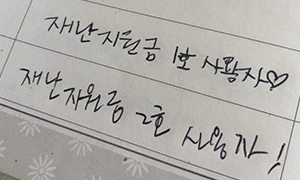 재난지원금 1호 사용자♡
재난지원금 2호 사용자!